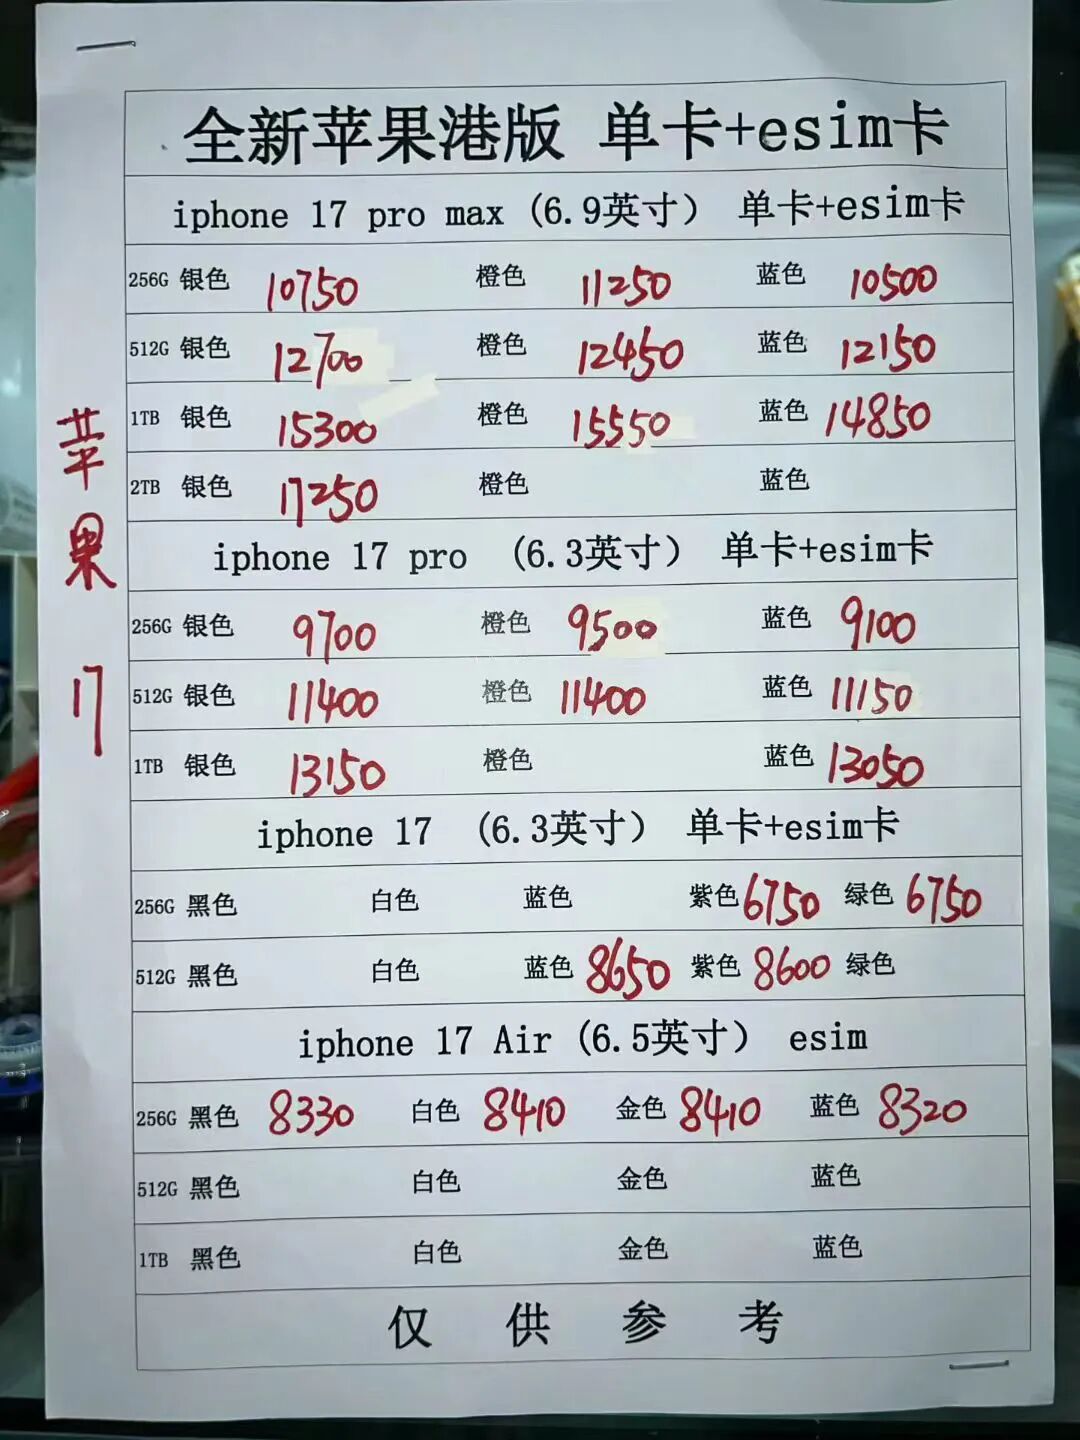 全新苹果港版 单卡+esim卡
iphone 17 pro max (6.9英寸) 单卡+esim卡
256G 银色 10750 橙色 11250 蓝色 10500
512G 银色 12700 橙色 12450 蓝色 12150
1TB 银色 15300 橙色 15550 蓝色 14850
2TB 银色 17250 橙色 蓝色
iphone 17 pro (6.3英寸) 单卡+esim卡
256G 银色 9700 橙色 9500 蓝色 9100
512G 银色 11400 橙色 11400 蓝色 11150
1TB 银色 13150 橙色 蓝色 13050
iphone 17 (6.3英寸) 单卡+esim卡
256G 黑色 白色 蓝色 紫色 6750 绿色 6750
512G 黑色 白色 蓝色 8650 紫色 8600 绿色
iphone 17 Air (6.5英寸) esim
256G 黑色 8330 白色 8410 金色 8410 蓝色 8320
512G 黑色 白色 金色 蓝色
1TB 黑色 白色 金色 蓝色
仅供参考
苹果17